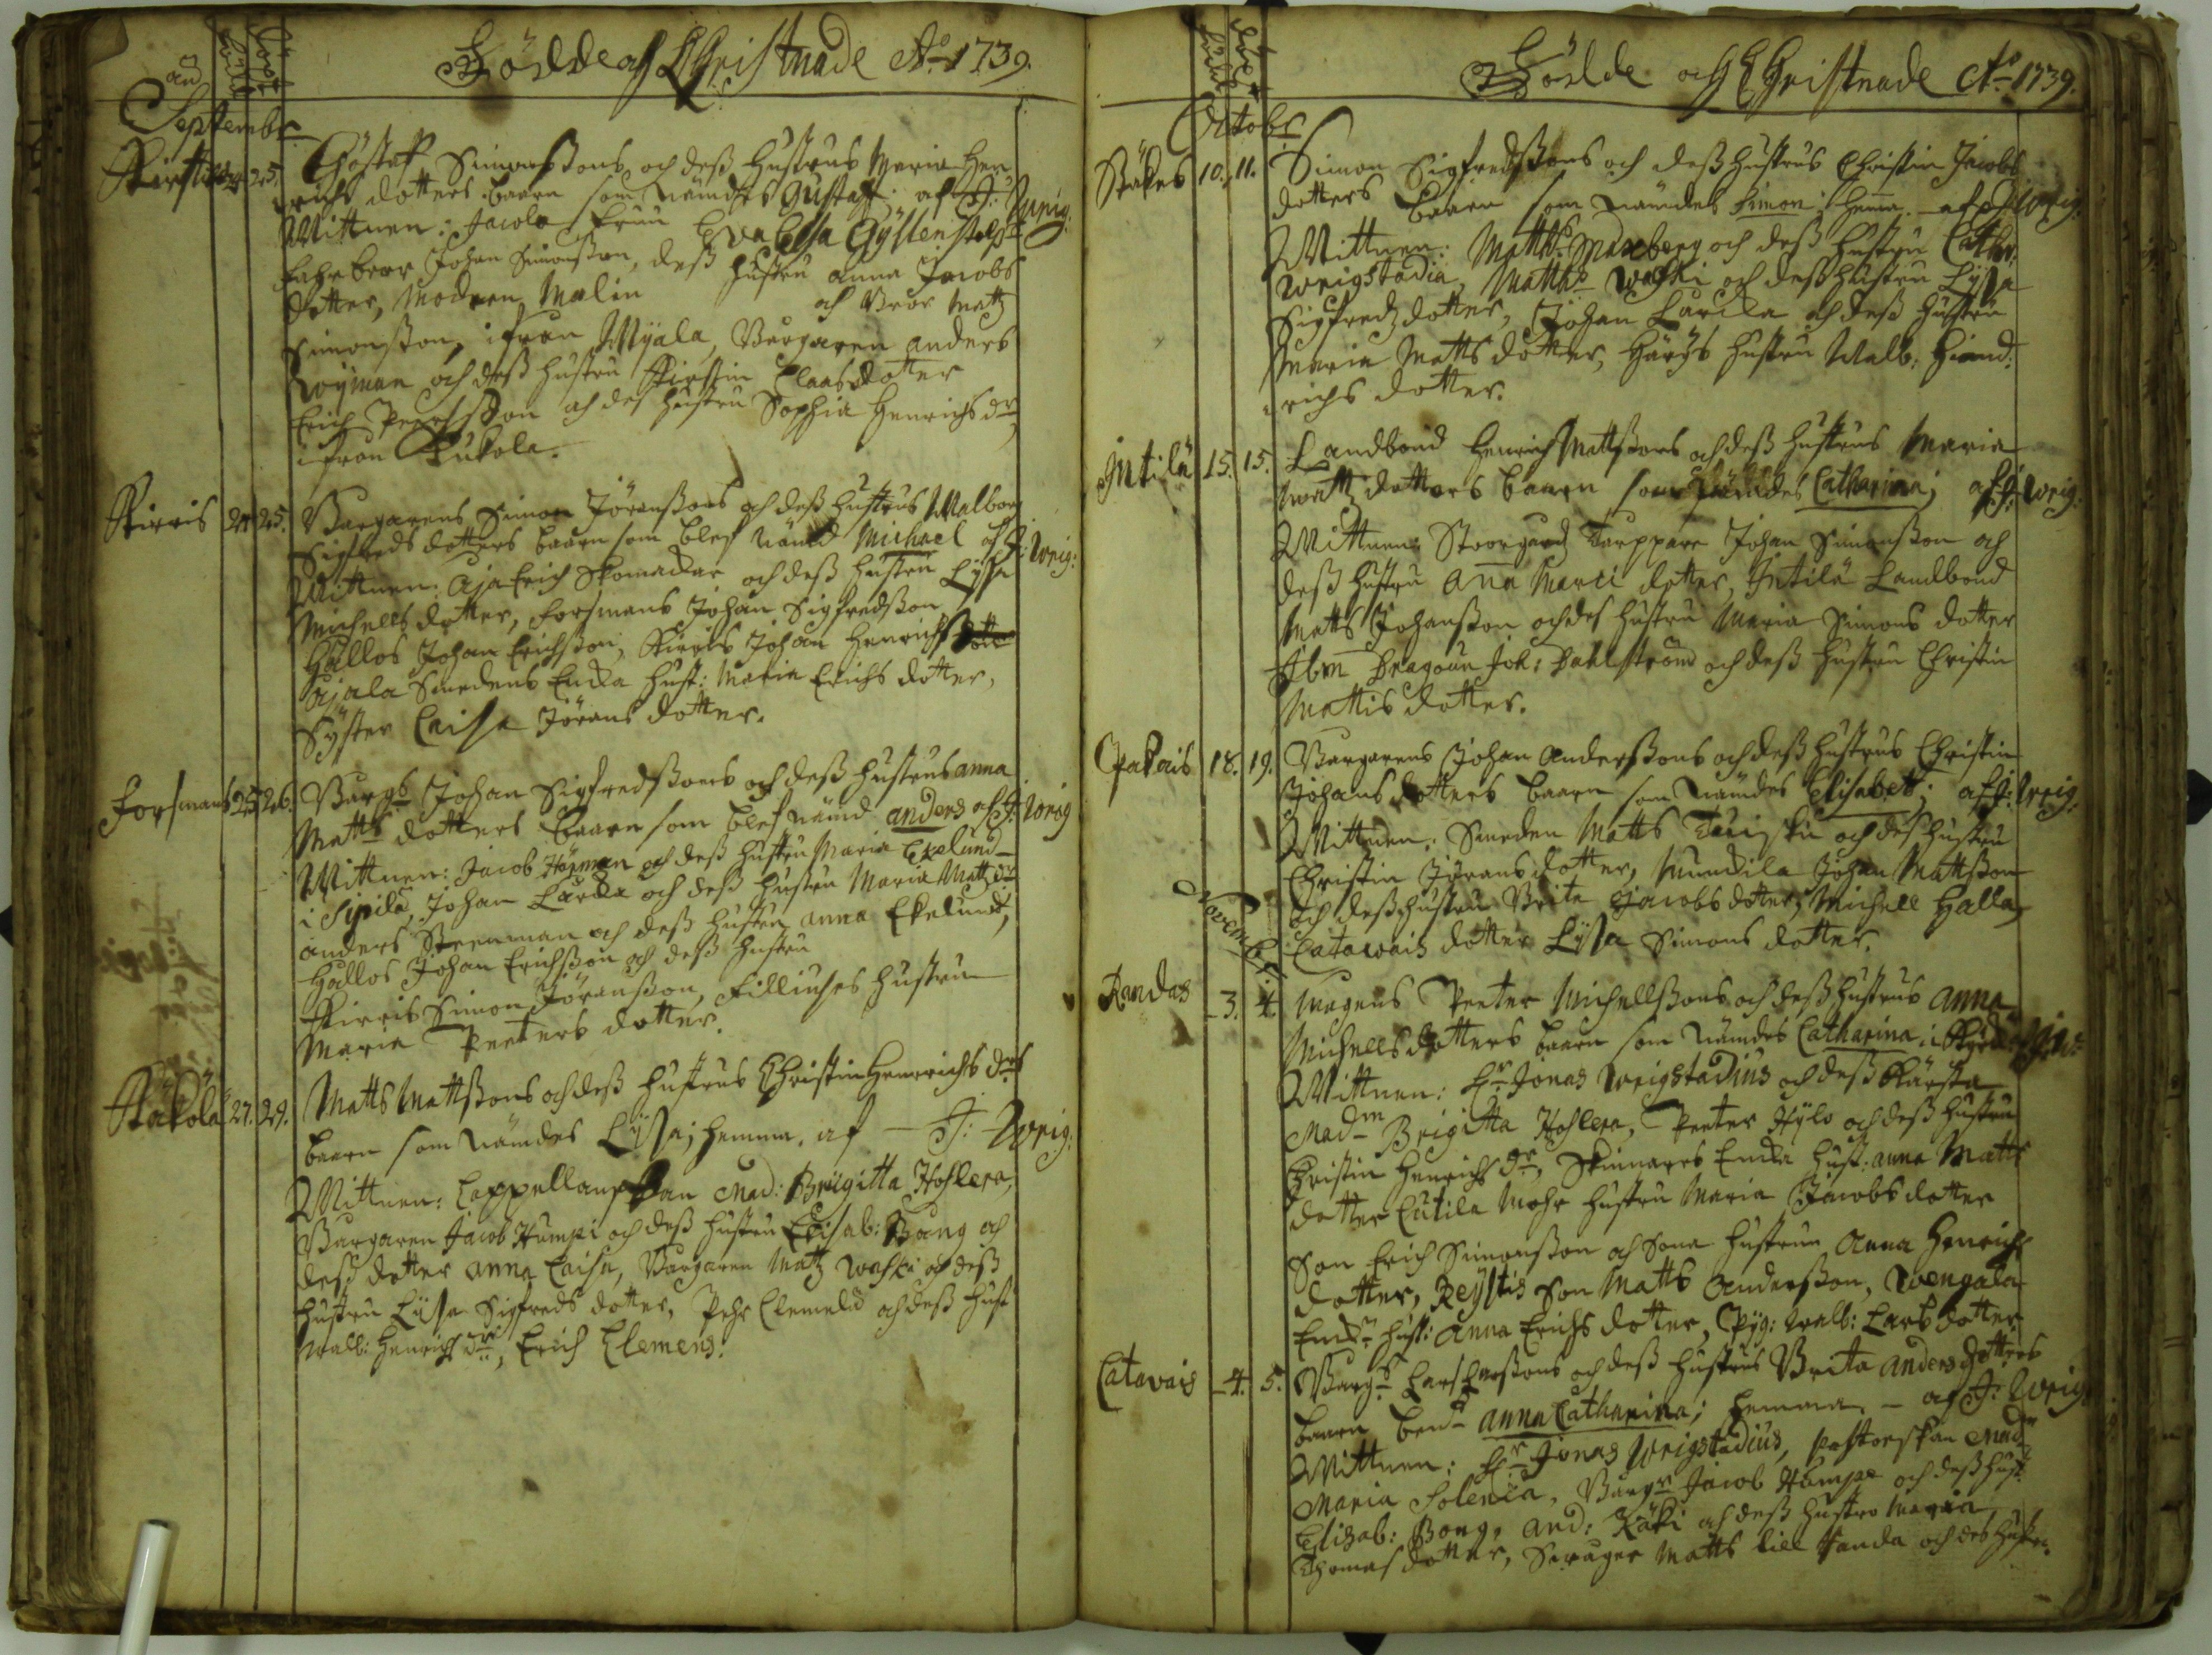 Födde och Christnade Aō 1739.
Född
Döpt
Septembr
24. 25. Göstaf Simonssons och dess hustrus Maria Hen
richs dotters baarn som nämdes Gustaf. af J: Wrig:
Wittnen: Jacola Frun Eva Elsa Gyllenstolpe
Farbror Johan Simonsson, dess hustru Anna Jacobs
dotter, Modren Malin och Bror Matz
Simonsson, ifrån Myala, Borgaren Anders
Roijman och dess hustru Kirstin Claasdotter
Erich Peersson och des hustru Sophia Henrichs dr
ifrån Kukola.
Kirris 24 25. Borgarens Simon Jöranssons och dess hustrus Walbor
Sigfreds dotters baarn som blef nämd Michael af J: Wrig:
Wittnen: Aja Erich Skomackar och dess hustru Lijsa
Michells dotter, Forsmans Johan Sigfredsson
Hållos Johan Erichsson, Kirris Johan Henrichs
Ajala Smedens Encka hust: Maria Erichs dotter,
Syster Caisa Jörans dotter.
Forsmans 25 26. Borgs Johan Sigfredssons och dess hustrus Anna
Matts dotters baarn som blef nämd Anders af J: Wrig
Wittnen: Jacob Höijman och dess hustru Maria Ekelund
i Sipilä, Johan Laurila och dess hustru Maria Matts dr
Anders Steenman och dess hustru Anna Ekelund,
Hållos Johan Erichsson och dess hustru
Kirris Simon Jöransson, Fillinches hustru
Maria Peeters dotter.
Kåkola 27. 29. Matts Mattssons och dess hustrus Christin Henrichs drs
baarn som nämdes Lijsa; hemma. af J: Wrig:
Wittnen: Cappellanskan Mad: Brigitta Hohlera,
Borgaren Jacob Humpi och dess hustru Elisab: Bång och
dess dotter Anna Caisa, Borgaren Matz Waski och dess
hustru Lijsa Sigfreds dotter, Pehr Clemeld och dess hust
Walb: Henrichs dr, Erich Clemens.
Födde och Christnade Aō 1739.
Född
Döpt
Octobr
Ståhes 10. 11. Simon Sigfredssons och dess hustrus Christin Jacobs
dotters baarn som nämdes Simon; hemma. af J: Wrig:
Wittnen: Matths Maxberg och dess hustru Cathr:
Wrigstadia, Matths Waski och dess hustru Lijsa
Sigfredz dotter, Johan Laurila och dess hustru
Maria Matts dotter, Härijs hustru Walb: Hind:
richs dotter.
Intilä 15. 15. Landbond Henrich Mattssons och dess hustrus Maria
Mattz dotters baarn som nämdes Catharina; af J: Wrig:
Wittnen: Stoorgårdz Torppare Johan Simonsson och
dess hustru Anna Marci dotter, Intilä Landbond
Matts Johansson och des hustru Maria Simons dotter
Dragoun Joh: Dahlström och dess hustru Christin
Mattis dotter.
Pakais 18. 19. Borgarens Johan Anderssons och dess hustrus Christin
Johans dotters baarn som nämdes Elisabet; af J: Wrig:
Wittnen: Smeden Matts och des hustru
Christin Jörans dotter, Mundila Johan Mattsson
och dess hustru Brita Jacobs dotter, Michell Halla,
Catawais dotter Lijsa Simons dotter.
Novembr:
Randas 3. 4. Magnus Peeter Michellssons och dess hustrus Anna
Michells dotters baarn som nämdes Catharina; i
Wittnen: Hr Jonas Wrigstadius och dess Kärsta
Madm Brigitta Hohlera, Peeter Hylo och dess hustru
Christin Henrichs dr, Skinnares Encka hust: Anna Matts
dotter Cutila Mohr hustru Maria Jacobs dotter
Son Erich Simonsson och Sons hustru Anna Henrichs
dotter, Reijstis Son Matts Andersson, Wengala
Enck: hust: Anna Erichs dotter, Pijg: Walb: Lars dotter
Catavais 4. 5. Borgs Lars Larssons och dess hustrus Brita Anders dotters
baarn bend Anna Catharina; hemma - af J: Wrig:
Wittnen: Hr Jonas Wrigstadius, Pastorskan Madm
Maria Solenia, Borgr Jacob Humpe och dess hust:
Elisab: Bong, And: Käki och dess hustro Maria
Thomas dotter, Matts lill Handa och des hustru